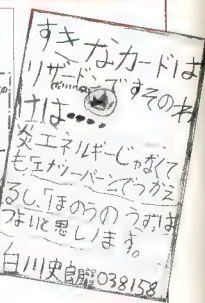 すきなカードは
リザードンですそのわ
けは・・・・
炎エネルギーじゃなくて
もエナジーバーンでつかえ
るし「ほのうのうずは
つよいと思います。
白川史朗 038158